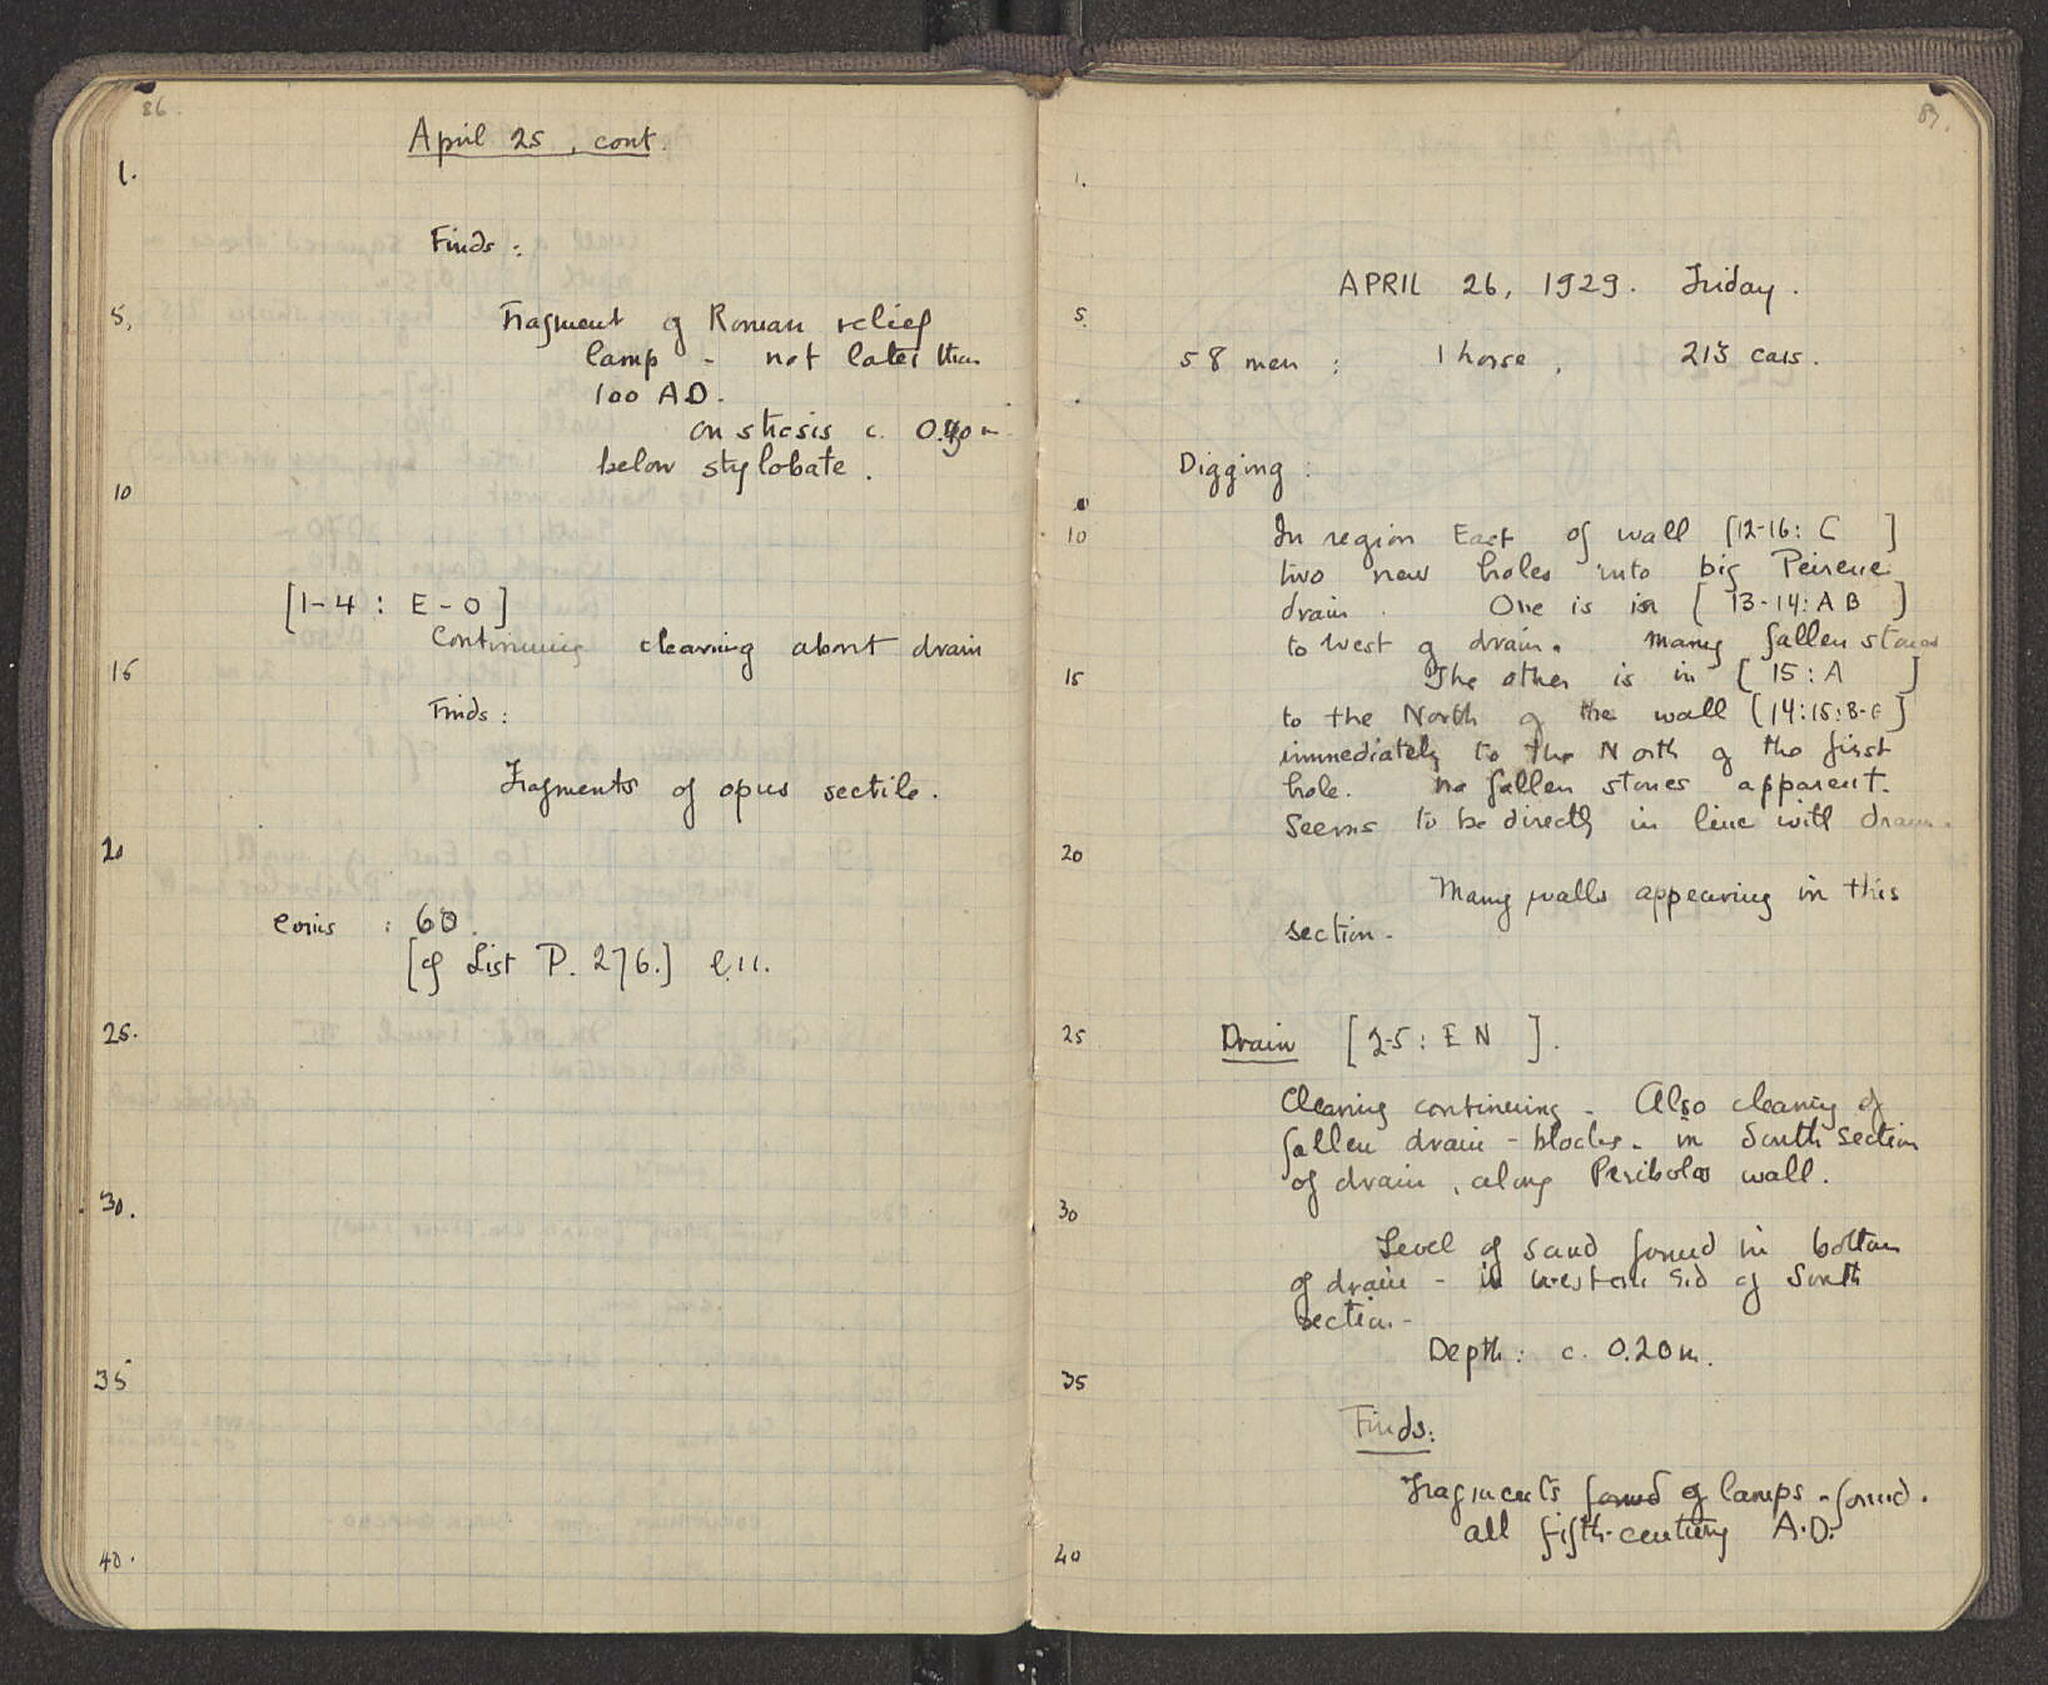 86.
April 25, cont.
1.
Finds:
5.
Fragment of Roman relief
lamp - not later than
100 A.D.
on stosis c. 0.40m
below stylobate.
10
[1-4: E-O]
Continuing clearing about drain
15
Finds:
Fragments of opus sectile.
20
Coins: 60.
[cf List P. 276.] l.11.
25.
30.
35
40.
87.
1.
APRIL 26, 1929. Friday.
5.
58 men: 1 horse, 213 cars.
Digging:
10
In region East of wall [12-16: C ]
two new holes into big Peirene
drain. One is in [13-14: A B ]
to West of drain. Many fallen stones
15
The other is in [15: A ]
to the North of the wall [14:15:B-C]
immediately to the North of the first
hole. No fallen stones apparent.
Seems to be directly in line with drain.
20
Many walls appearing in this
section.
25
Drain [2-5: E N ].
Clearing continuing - Also clearing of
fallen drain-blocks - in South section
of drain, along Peribolos wall.
30
Level of sand found in bottom
of drain - in western sid of South
section -
Depth: c. 0.20m.
35
Finds:
Fragments found of lamps - found.
all fifth-century A.D.
40